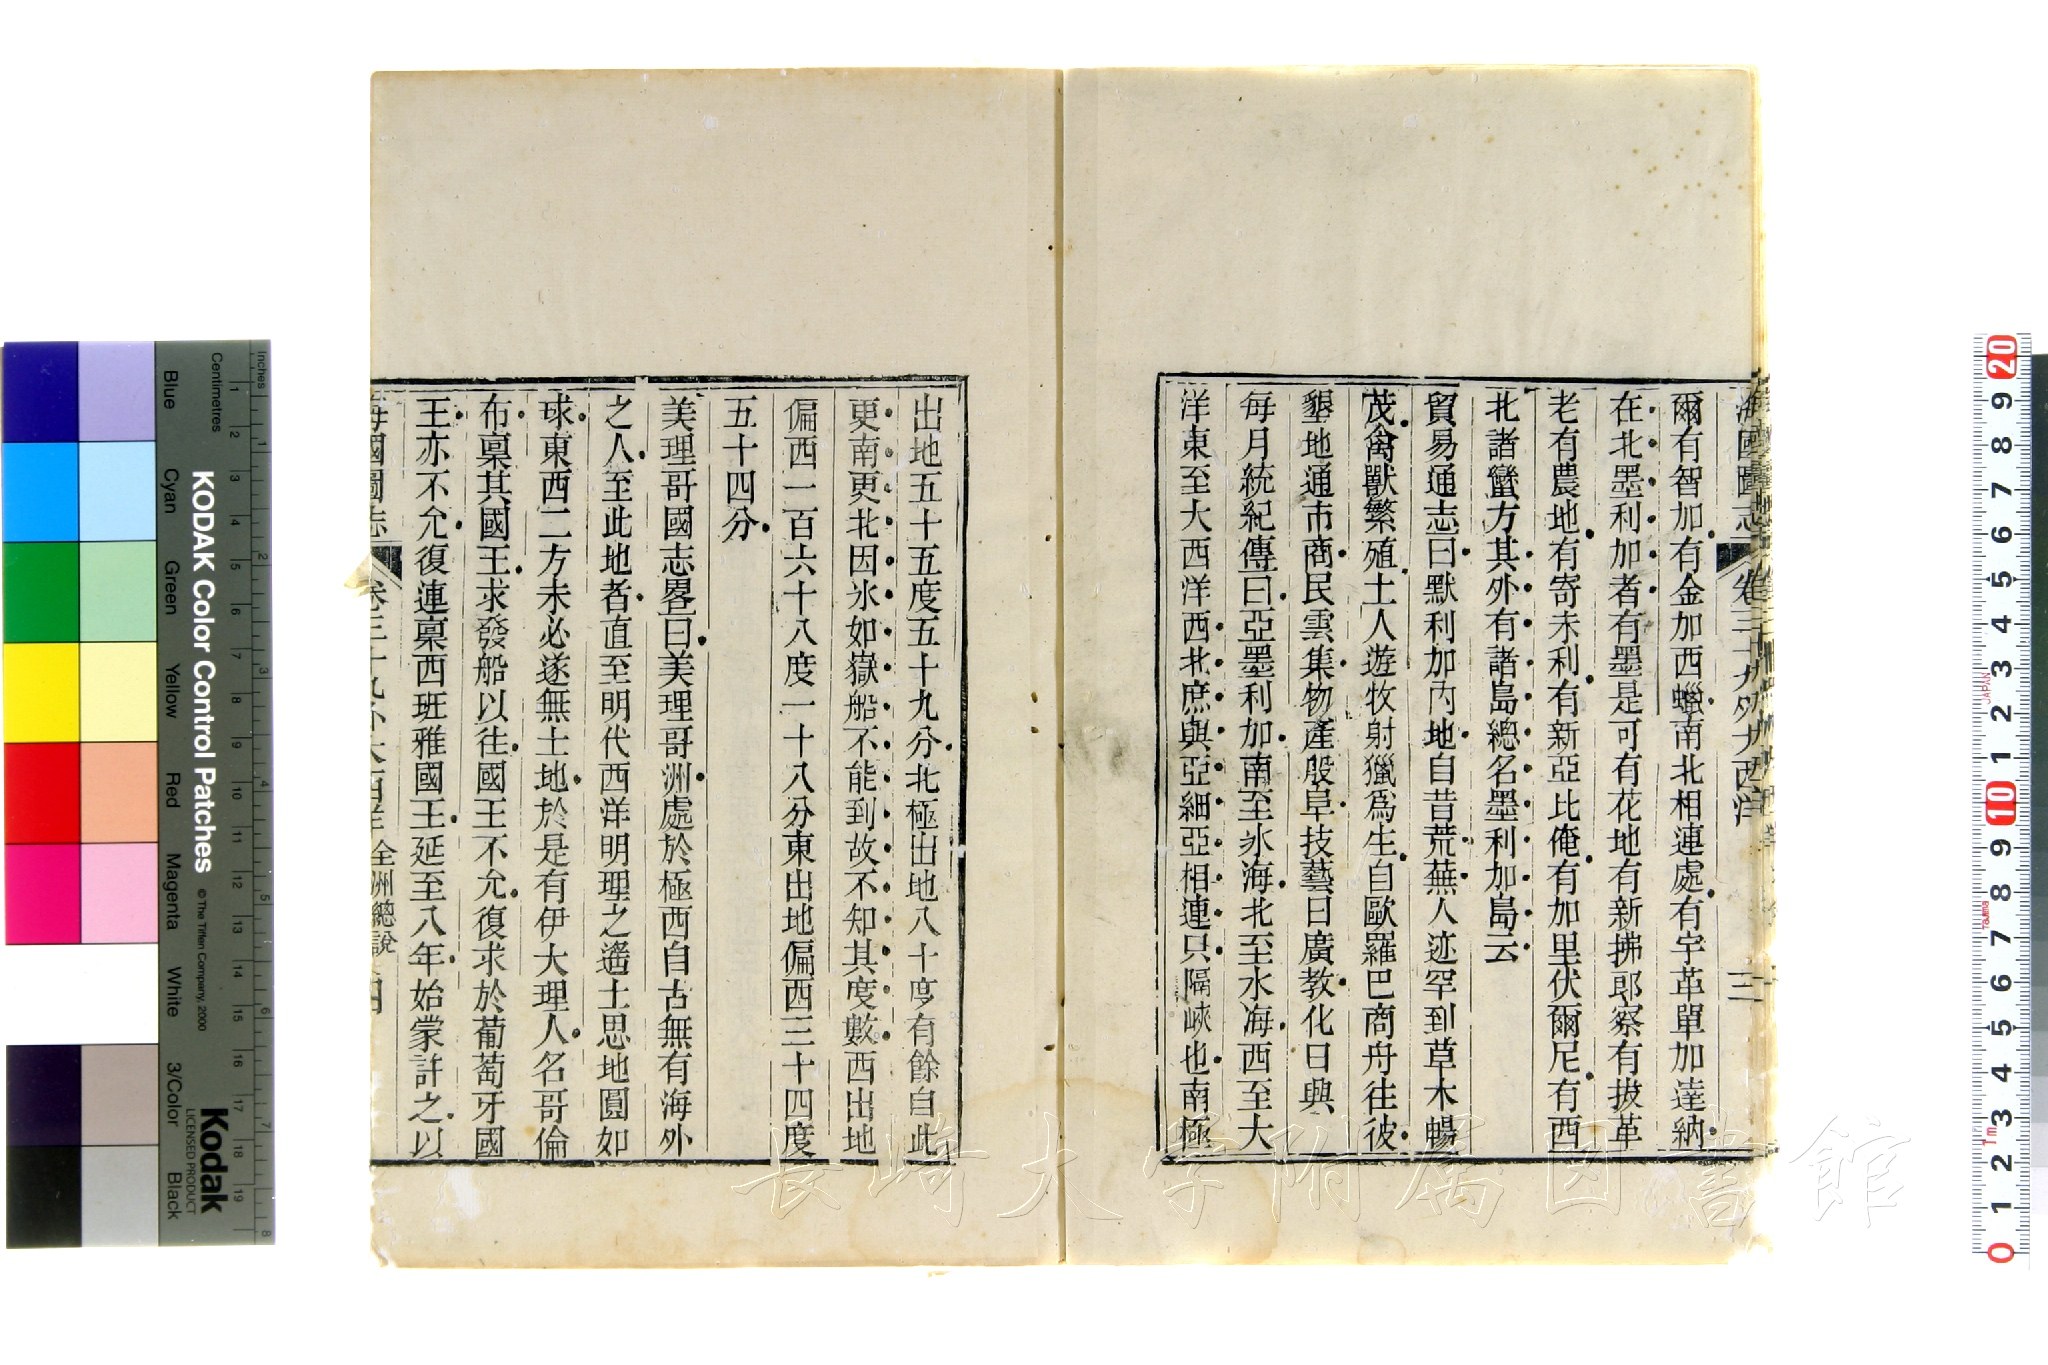 海國圖志 卷三十九 外大西洋 三
爾有智加有金加西蠟南北相連處有宇革單加達納
在北墨利加者有墨是可有花地有新拂郎察有拔革
老有農地有寄未利有新亞比俺有加里伏爾尼有西
北諸蠻方其外有諸島總名墨利加島云
貿易通志曰默利加內地自昔荒蕪人迹罕到草木暢
茂禽獸繁殖土人遊牧射獵爲生自歐羅巴商舟往彼
墾地通市商民雲集物產殷阜技藝日廣教化日興
每月統紀傳曰亞墨利加南至氷海北至水海西至大
洋東至大西洋西北庶與亞細亞相連只隔峽也南極
出地五十五度五十九分北極出地八十度有餘自此
更南更北因氷如嶽船不能到故不知其度數西出地
偏西一百六十八度一十八分東出地偏西三十四度
五十四分
美理哥國志畧曰美理哥洲處於極西自古無有海外
之人至此地者直至明代西洋明理之邁士思地圓如
球東西二方未必遂無土地於是有伊大理人名哥倫
布稟其國王求發船以往國王不允復求於葡萄牙國
王亦不允復連稟西班雅國王延至八年始蒙許之以
海國圖志 卷三十九 外大西洋 全洲總說 四
KODAK Color Control Patches
© The Tiffen Company, 2000
Kodak
LICENSED PRODUCT
Centimetres
Inches
Blue
Cyan
Green
Yellow
Red
Magenta
White
3/Color
Black
1 2 3 4 5 6 7 8 9 10 11 12 13 14 15 16 17 18 19
1 2 3 4 5 6 7 8
20 9 8 7 6 5 4 3 2 1 10 9 8 7 6 5 4 3 2 1 0
JAPAN
1m
長崎大学附属図書館